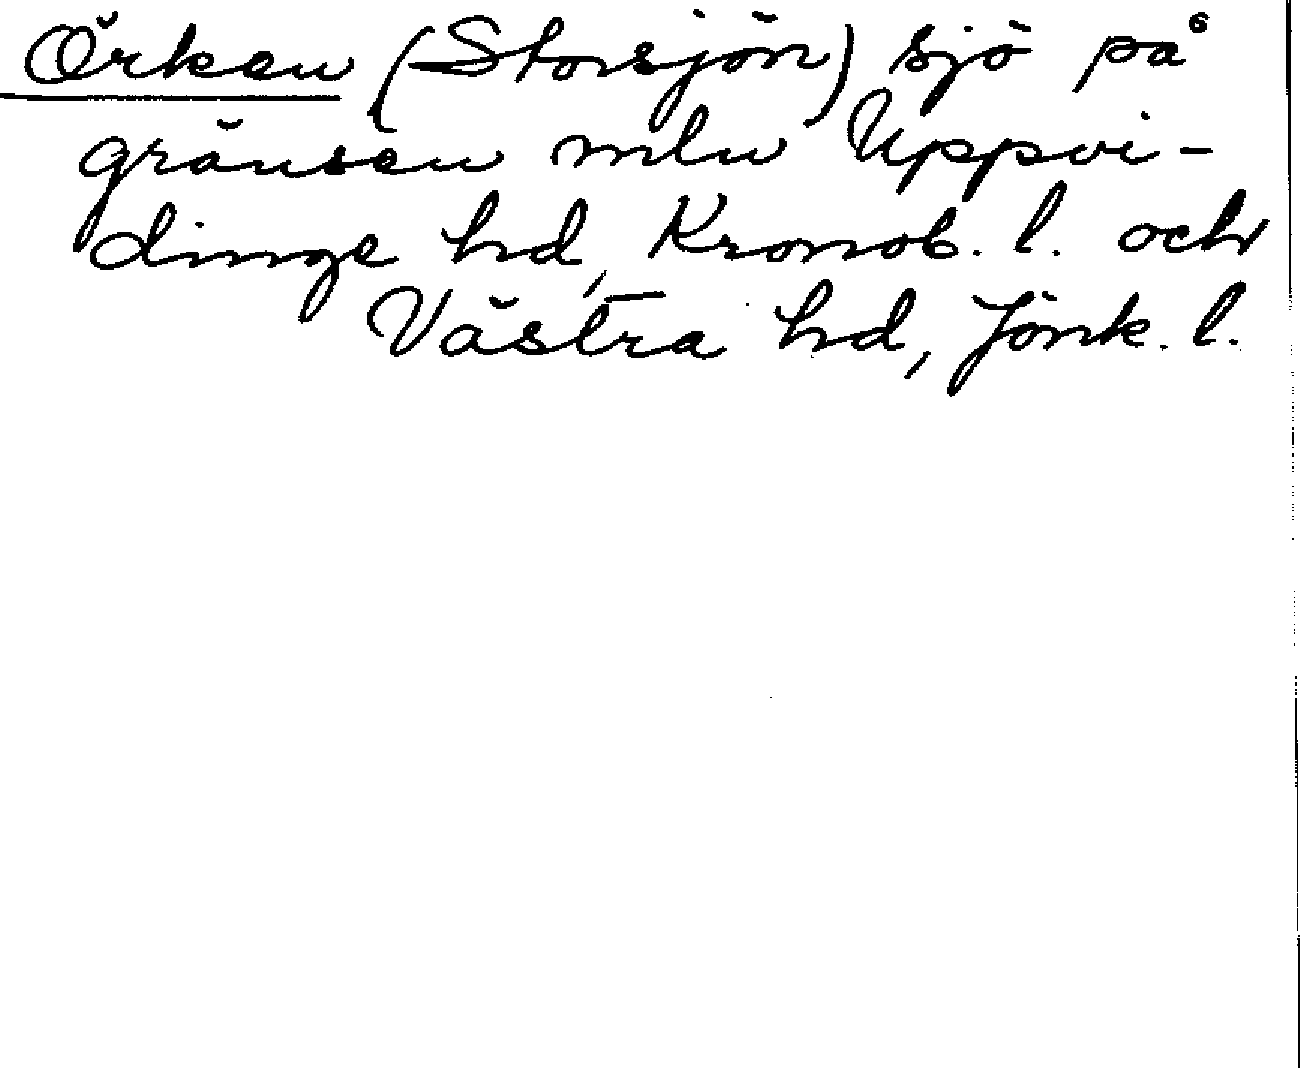 Örken (Storsjön) sjö på
gränsen mln Uppvi-
dinge hd, Kronob. l. och
Västra hd, Jönk. l.